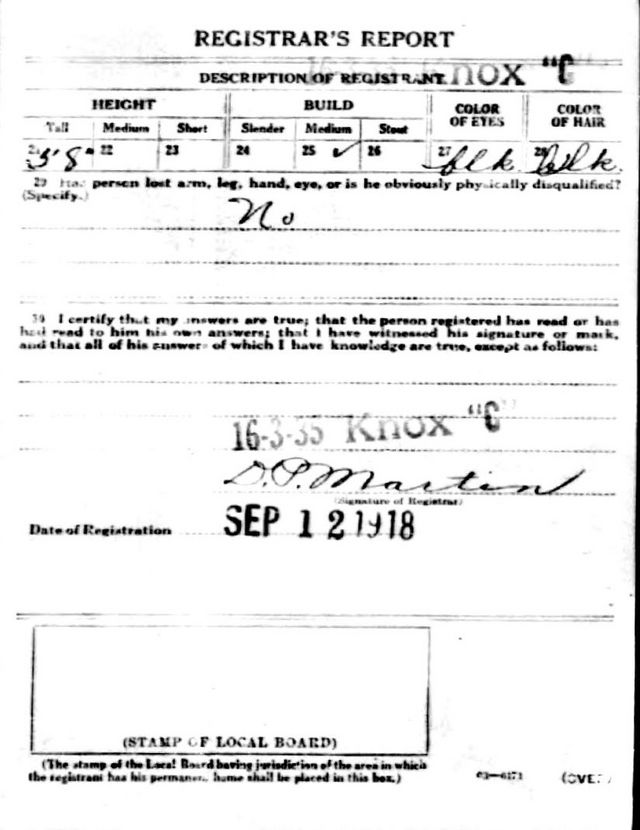 REGISTRAR'S REPORT
16-3-35 Knox "C"
DESCRIPTION OF REGISTRANT
HEIGHT BUILD COLOR OF EYES COLOR OF HAIR
Tall Medium Short Slender Medium Stout
21 5'8" 22 23 24 25 ✓ 26 27 blk 28 blk.
29 Has person lost arm, leg, hand, eye, or is he obviously physically disqualified?
(Specify.)
No
30 I certify that my answers are true; that the person registered has read or has
had read to him his own answers; that I have witnessed his signature or mark,
and that all of his answers of which I have knowledge are true, except as follows:
16-3-35 Knox "C"
D. P. Martin
(Signature of Registrar)
Date of Registration SEP 12 1918
(STAMP OF LOCAL BOARD)
(The stamp of the Local Board having jurisdiction of the area in which
the registrant has his permanent home shall be placed in this box.)
03—6171 (OVER)